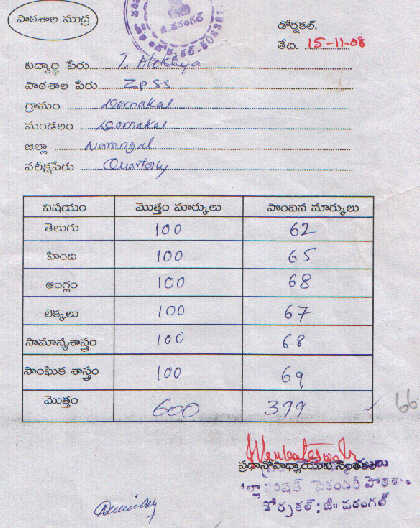 పాఠశాల ముద్ర
డోర్నకల్.
తేది. 15-11-08
విద్యార్థి పేరు T. Mokkhya
పాఠశాల పేరు ZPSS
గ్రామం Dornakal
మండలం Dornakal
జిల్లా Warangal
పరీక్షపేరు Quarterly
విషయం మొత్తం మార్కులు పొందిన మార్కులు
తెలుగు 100 62
హింది 100 65
ఆంగ్లం 100 68
లెక్కలు 100 67
సామాన్యశాస్త్రం 100 68
సాంఘిక శాస్త్రం 100 69
మొత్తం 600 399
66
ప్రధానోపాధ్యాయుని సంతకము
డోర్నకల్; జి॥ వరంగల్